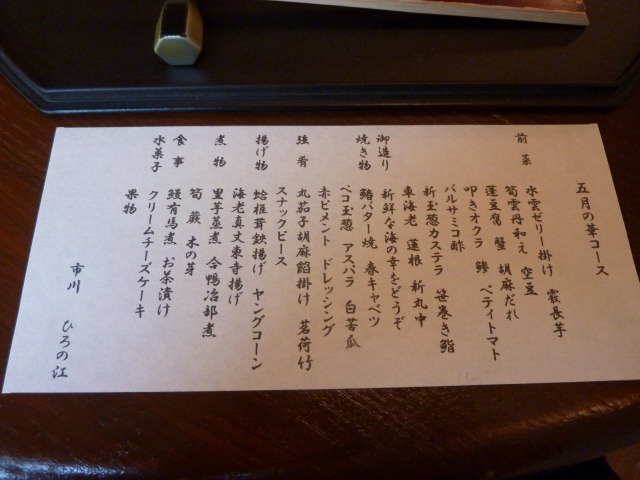 五月の華コース
前菜
水雲ゼリー掛け 霰長芋
筍雲丹和え 空豆
蓬豆腐 蟹 胡麻だれ
叩きオクラ 鯵 ペティトマト
バルサミコ酢
新玉葱カステラ 笹巻き鮨
車海老 蓮根 新丸中
御造り 新鮮な海の幸をどうぞ
焼き物 鰆バター焼 春キャベツ
ペコ玉葱 アスパラ 白苦瓜
赤ピメント ドレッシング
強肴 丸茄子胡麻餡掛け 茗荷竹
スナックピース
揚げ物 蛤椎茸鋏揚げ ヤングコーン
海老真丈東寺揚げ
煮物 里芋蒸煮 合鴨冶部煮
筍 蕨 木の芽
食事 鰻有馬煮 お茶漬け
水菓子 クリームチーズケーキ
果物
市川 ひろの江